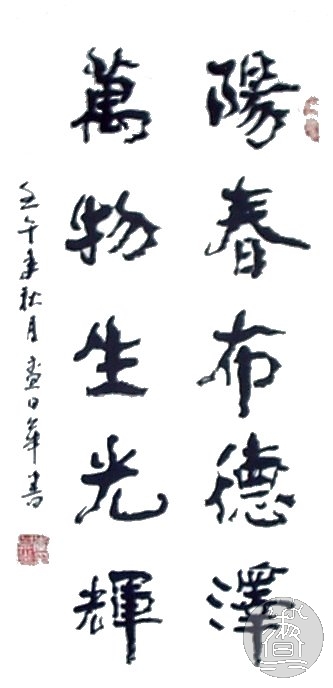 陽春布德澤
萬物生光輝
壬午年秋月查日華書